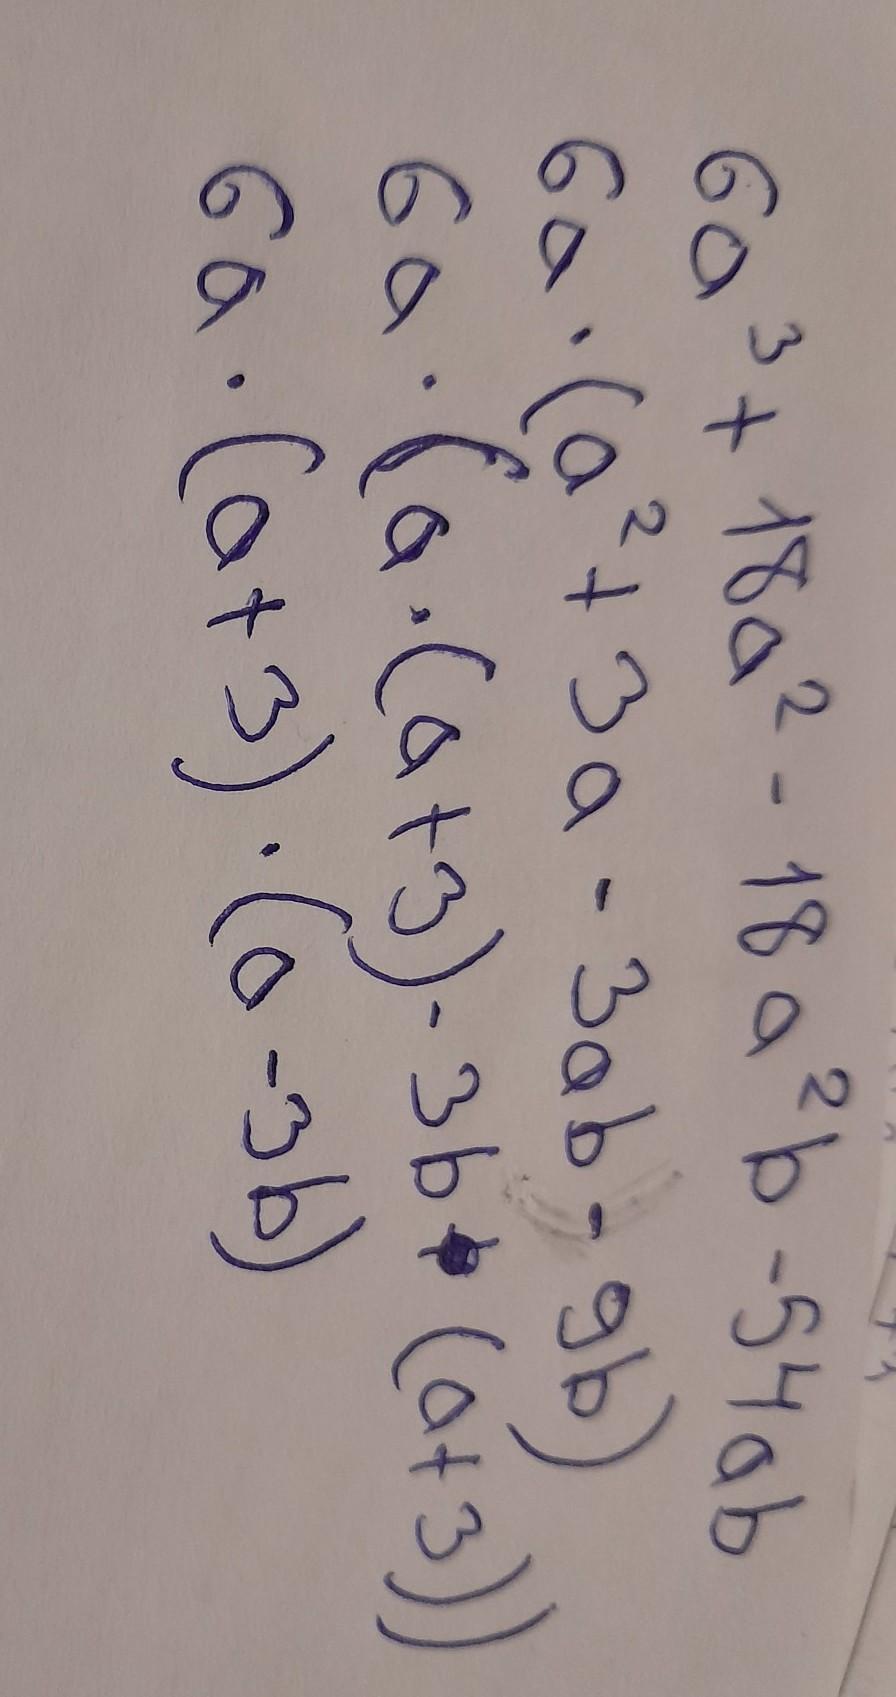 6a³ + 18a² - 18a²b - 54ab
6a · (a² + 3a - 3ab - 9b)
6a · (a · (a + 3) - 3b · (a + 3))
6a · (a + 3) · (a - 3b)